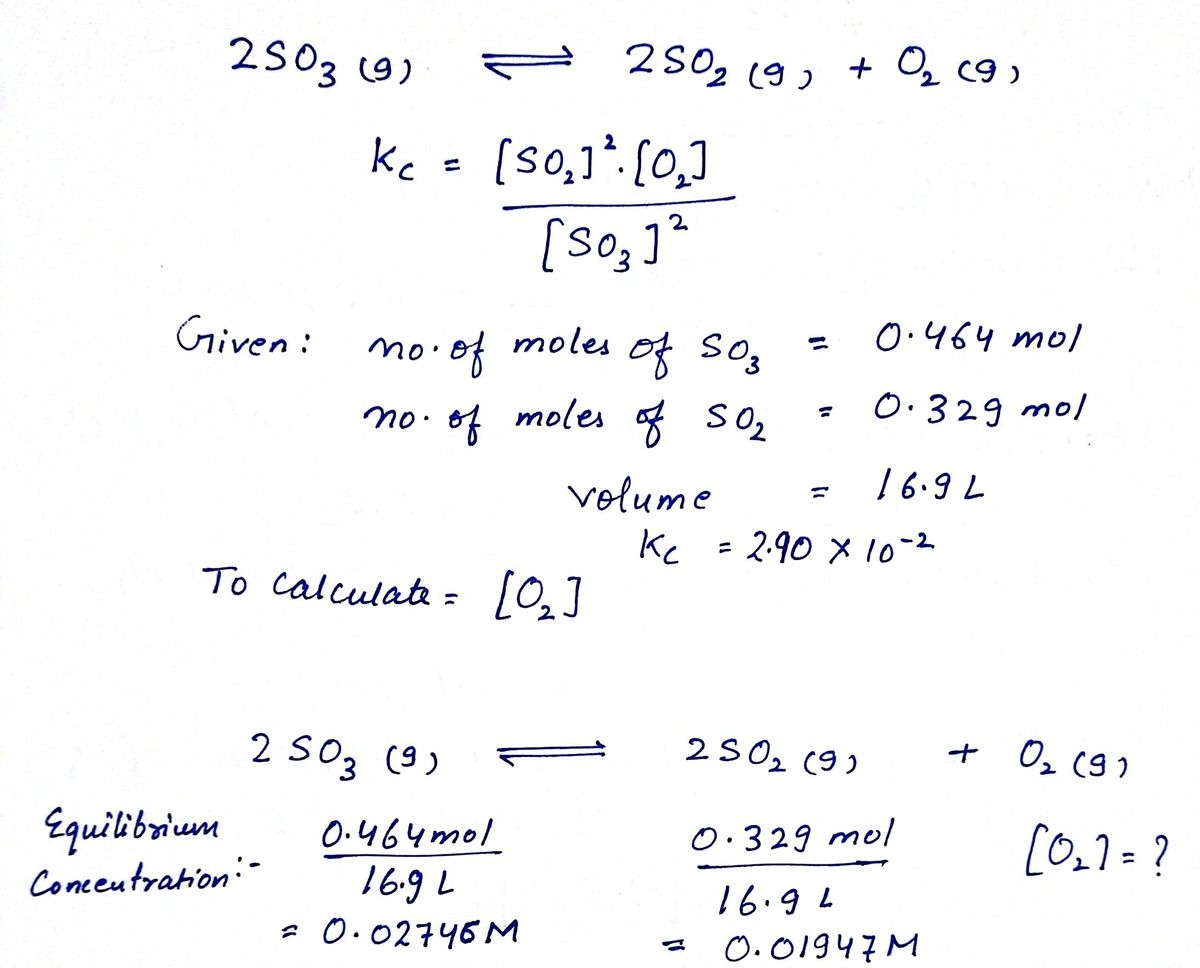 2SO₃ (g) ⇌ 2SO₂ (g) + O₂ (g)
Kc = [SO₂]².[O₂]
[SO₃]²
Given: no. of moles of SO₃ = 0.464 mol
no. of moles of SO₂ = 0.329 mol
volume = 16.9 L
Kc = 2.90 × 10⁻²
To Calculate = [O₂]
2 SO₃ (g) ⇌ 2SO₂ (g) + O₂ (g)
Equilibrium 0.464mol 0.329 mol [O₂] = ?
Concentration:- 16.9 L 16.9 L
= 0.02745M = 0.01947M